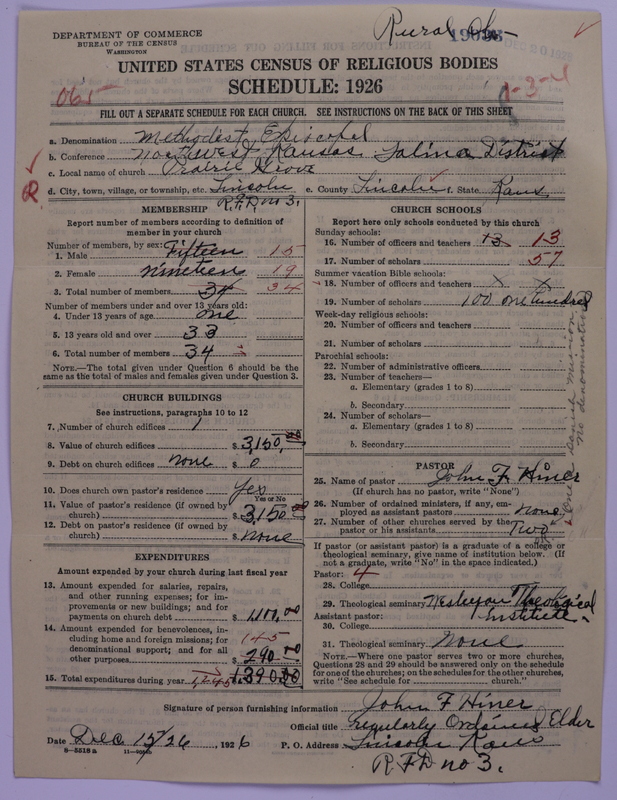 Rural Ch-
DEPARTMENT OF COMMERCE
BUREAU OF THE CENSUS
WASHINGTON
UNITED STATES CENSUS OF RELIGIOUS BODIES
SCHEDULE: 1926
065
1-3-4
FILL OUT A SEPARATE SCHEDULE FOR EACH CHURCH. SEE INSTRUCTIONS ON THE BACK OF THIS SHEET
a. Denomination Methodist Episcopal
b. Conference Northwest Kansas Salina District
c. Local name of church Prairie Grove
d. City, town, village, or township, etc. Lincoln e. County Lincoln f. State Kans
R.F.D. no 3.
MEMBERSHIP
Report number of members according to definition of
member in your church
Number of members, by sex:
1. Male Fifteen 15
2. Female nineteen 19
3. Total number of members 34 34
Number of members under and over 13 years old:
4. Under 13 years of age one
5. 13 years old and over 33
6. Total number of members 34
NOTE.—The total given under Question 6 should be the
same as the total of males and females given under Question 3.
CHURCH BUILDINGS
See instructions, paragraphs 10 to 12
7. Number of church edifices 1
8. Value of church edifices $ 3,150.00
9. Debt on church edifices none $ 0
10. Does church own pastor's residence Yes
Yes or No
11. Value of pastor's residence (if owned by
church) $ 3,150 00
12. Debt on pastor's residence (if owned by
church) $ none
EXPENDITURES
Amount expended by your church during last fiscal year
13. Amount expended for salaries, repairs,
and other running expenses; for im-
provements or new buildings; and for
payments on church debt $ 1,100.00
14. Amount expended for benevolences, in-
cluding home and foreign missions; for 145
denominational support; and for all
other purposes $ 290.00
15. Total expenditures during year 1,245 $ 1,390.00
CHURCH SCHOOLS
Report here only schools conducted by this church
Sunday schools:
16. Number of officers and teachers 13 13
17. Number of scholars 57
Summer vacation Bible schools:
18. Number of officers and teachers X X
19. Number of scholars 100 one hundred
Week-day religious schools:
20. Number of officers and teachers
21. Number of scholars
Parochial schools:
22. Number of administrative officers
23. Number of teachers—
a. Elementary (grades 1 to 8)
b. Secondary
24. Number of scholars—
a. Elementary (grades 1 to 8)
b. Secondary
One Danish Mission
No denomination
PASTOR
25. Name of pastor John F Hiner
(If church has no pastor, write "None")
26. Number of ordained ministers, if any, em-
ployed as assistant pastors none
27. Number of other churches served by the
pastor or his assistants Two
If pastor (or assistant pastor) is a graduate of a college or
theological seminary, give name of institution below. (If
not a graduate, write "No" in the space indicated.)
Pastor: 4
28. College
29. Theological seminary Wesleyan Theological
Assistant pastor: Institute
30. College
31. Theological seminary None
NOTE.—Where one pastor serves two or more churches,
Questions 28 and 29 should be answered only on the schedule
for one of the churches; on the schedules for the other churches,
write "See schedule for church."
Signature of person furnishing information John F Hiner
Official title regularly Ordained Elder
Date Dec 15/26, 1926 P. O. Address Lincoln Kans
8—5518a
R.F.D no 3.